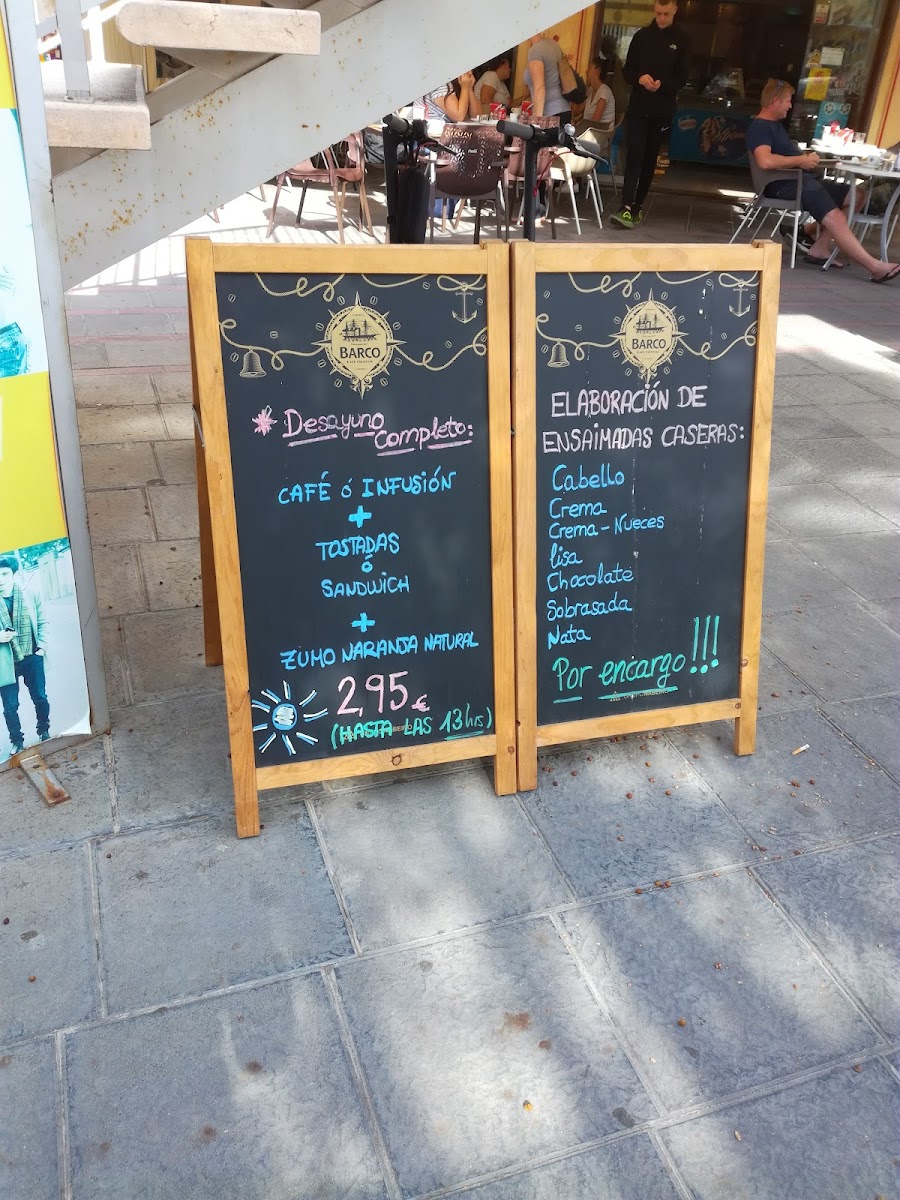 BARCO
* Desayuno
completo:
CAFÉ ó INFUSIÓN
+
TOSTADAS
ó
SANDWICH
+
ZUMO NARANJA NATURAL
2,95 €
(HASTA LAS 13 hrs)
BARCO
ELABORACIÓN DE
ENSAIMADAS CASERAS:
Cabello
Crema
Crema - Nueces
lisa
Chocolate
Sobrasada
Nata
Por encargo!!!